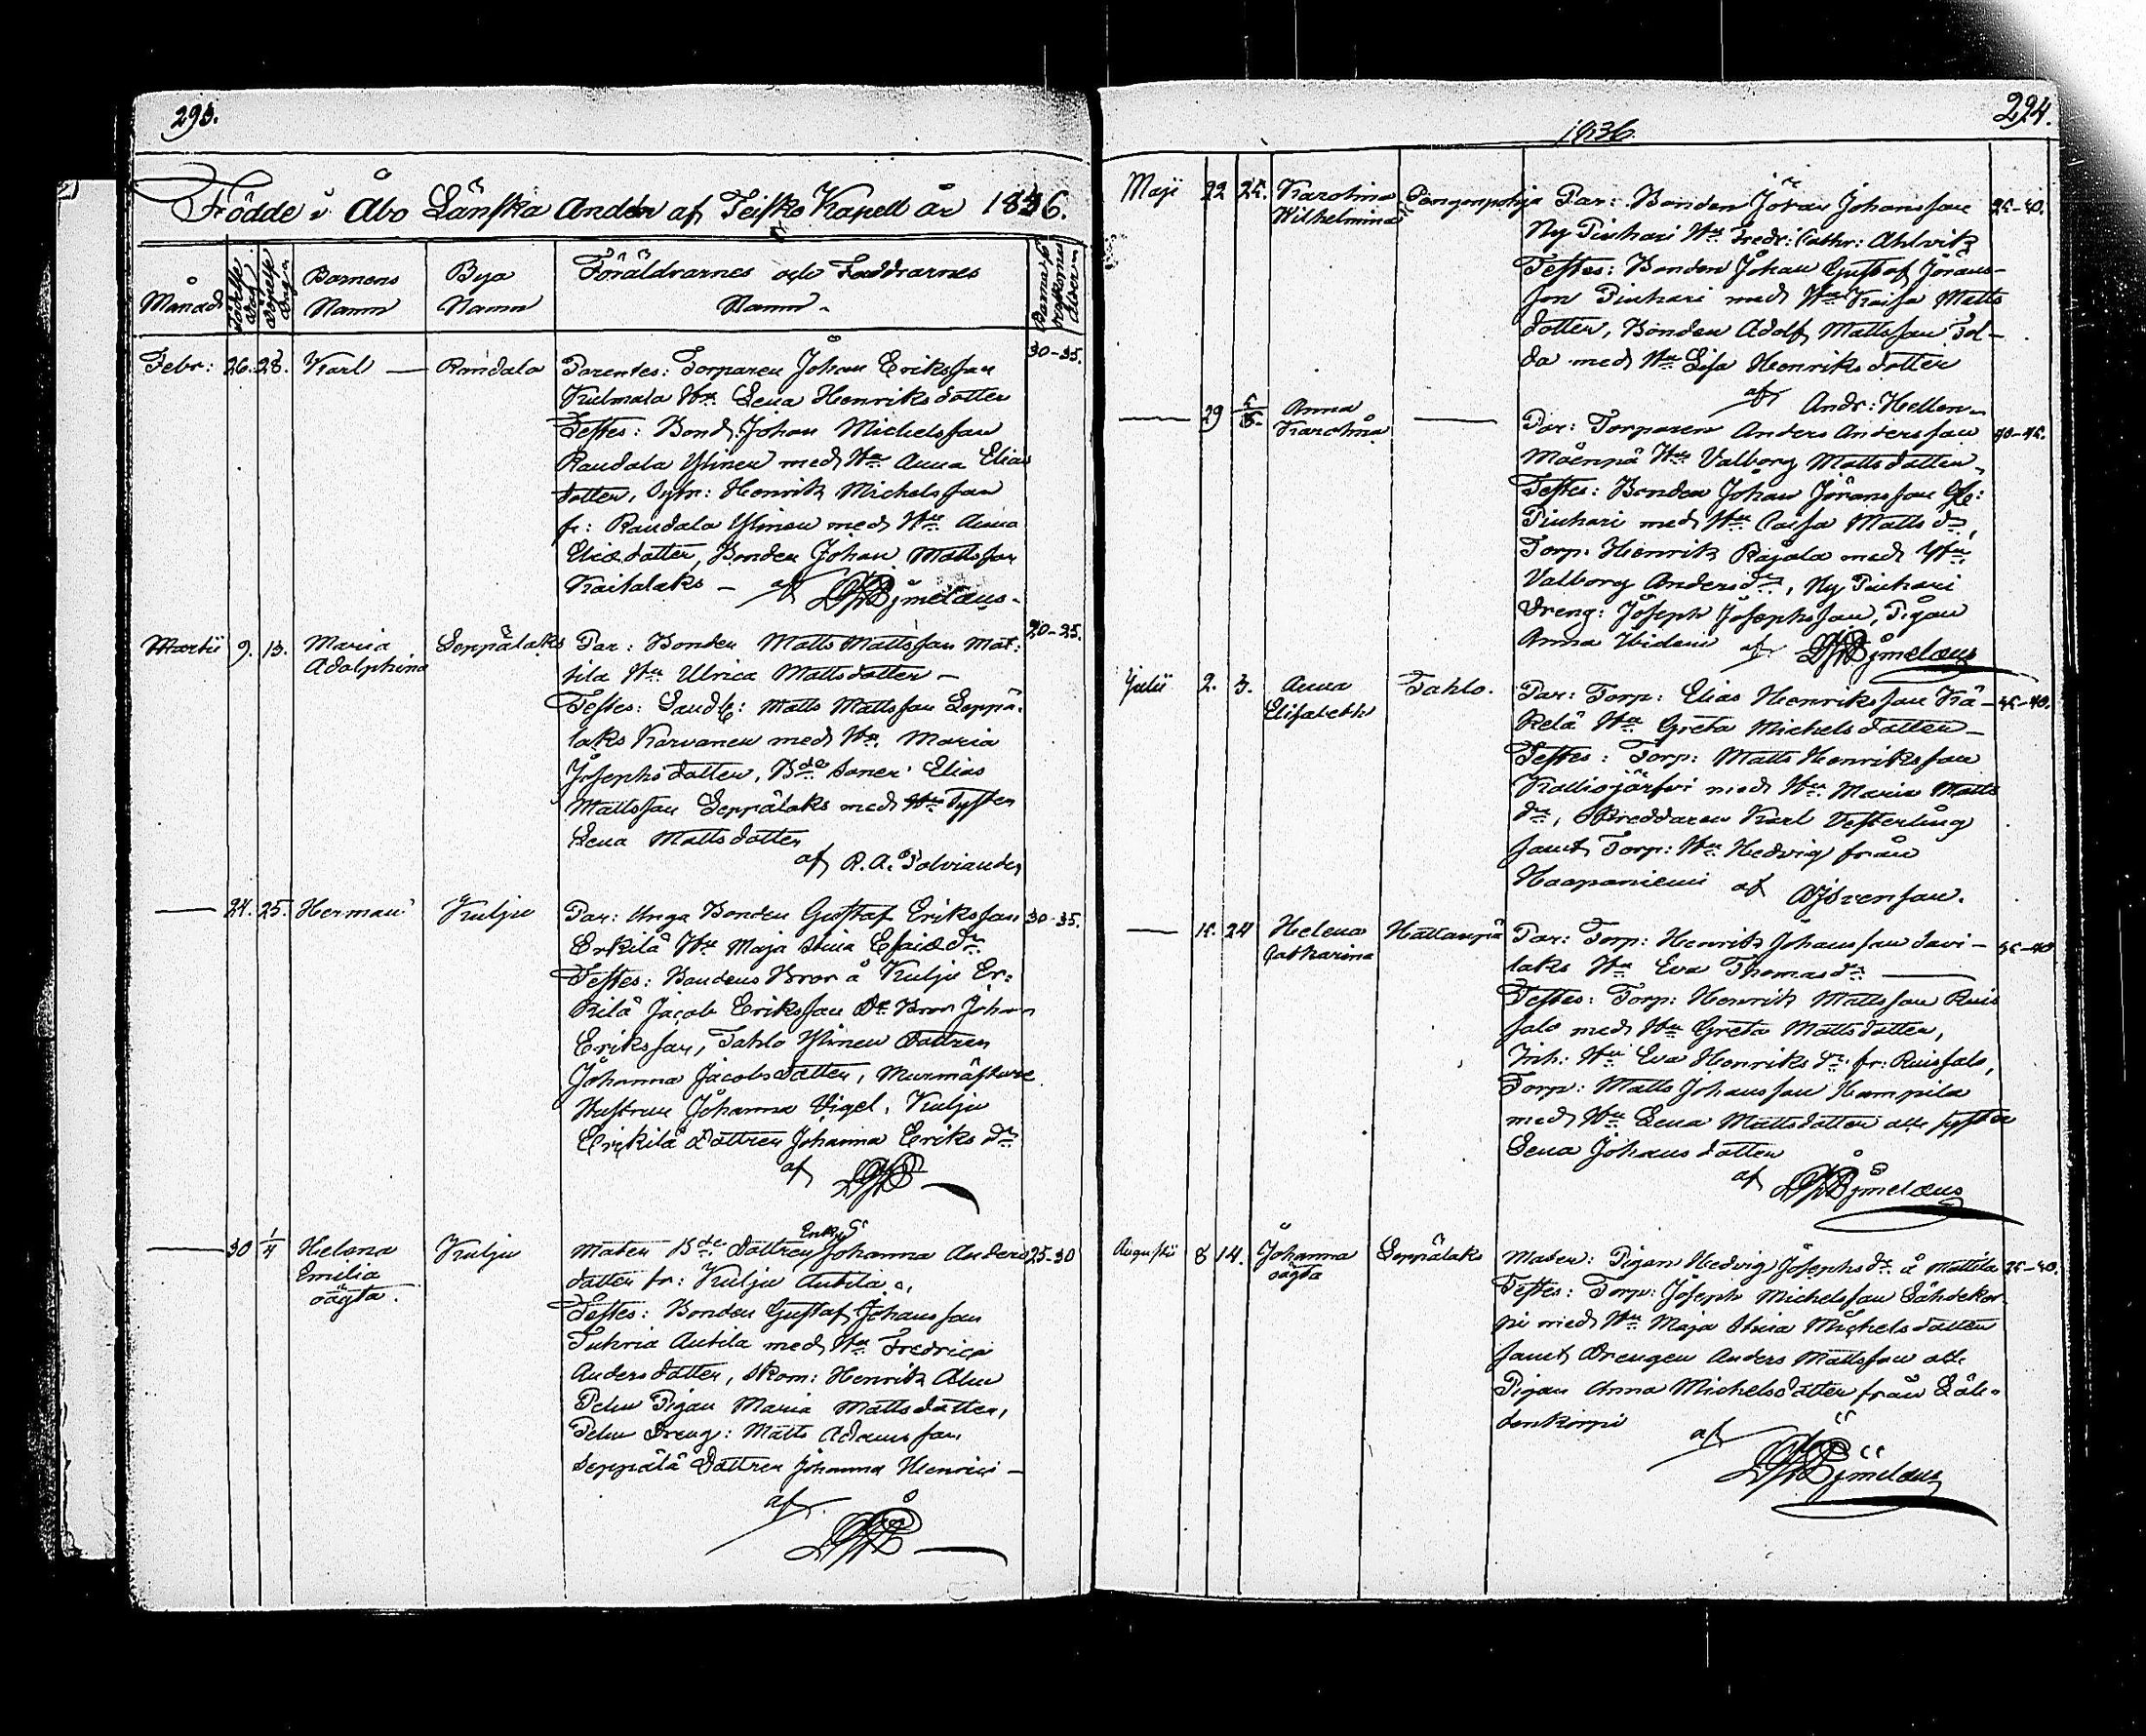 293.
Födde i Åbo Länska Andelen af Teisko Kapell år 1836.
Månad
Födelse dag
Döpelse dagar
Barnens Namn
Bya Namn
Föräldrarnes och Faddrarnes Namn.
Febr: 26. 28. Karl — Randala Parentes: Torparen Johan Eriksson 30-35.
Kulmala Hu. Lena Henriksdotter
Testes: Bond. Johan Michelsson
Randala Ylinen med Hu Anna Elias
dotter, Sytn: Henrik Michelsson
fr: Randala Ylinen med Hu Anna
Eliædotter, Bonden Johan Mattsson
Kaitalaks — af
Martii 9. 13. Maria Adolphina Leppälaks Par: Bonden Matts Mattsson Mat- 20-25.
tila Hu Ulrica Mattsdotter —
Testes: Landb: Matts Mattsson Leppä-
laks Karvanen med Hu. Maria
Josephsdotter, Bde sonen Elias
Mattsson Leppälaks med Hu Syster
Lena Mattsdotter
af R. A. Polviander
— 24. 25. Herman Kulju Par: Unga Bonden Gustaf Eriksson 30-35.
Erkilä Hu Maja Stina Esaiædr
Testes: Bondens Bror å Kulju Er-
kilä Jacob Eriksson Dr Bror Johan
Eriksson, Tahlo Ylinen Dottren
Johanna Jacobsdotter, Murmästare
Hustrun Johanna Vigel, Kulju
Erikilä Dottren Johanna Eriks dr
af
— 30 1/4 Helena Emilia oägta. Kulju Moder Bde Dottren Enk. Johanna Anders 25-30
dotter fr: Kulju Antila.
Testes: Bonden Gustaf Johansson
Tuhria Antila med Hu Fredrica
Andersdotter, Skom: Henrik Alm
Pehu Pigan Maria Mattsdotter,
Pehu Dreng: Matts Adamsson,
Seppälä Dottren Johanna Henrici —
af
294.
1836.
Maji 22 25. Karolina Wilhelmina Pengonpohja Par: Bonden Jöran Johansson 35-40.
Ny Pinhari Hu Fredr: Cathr: Ahlvik
Testes: Bonden Johan Gustaf Jörans-
son Pinhari med Hu Kaisa Matts
dotter, Bonden Adolf Mattsson Tol-
da med Hu Lisa Henriksdotter
af Andr: Hellen
— 29 Anna Karolina — Par: Torparen Anders Andersson 40-45.
Mäenpä Hu Valborg Mattsdotter
Testes: Bonden Johan Jöransson
Pinhari med Hu Caisa Matts dr,
Torp: Henrik Rajala med Hu
Valborg Anders dr, Ny Pinhari
Dreng: Joseph Josephsson, Pigan
Anna Widemi af
Julii 2. 3. Anna Elisabeth Tahlo. Par: Torp: Elias Henriksson Kä- 35-40.
kelä Hu Greta Michelsdotter —
Testes: Torp: Matts Henriksson
Kalliojärfvi med Hu Maria Matts
dr, Skreddaren Karl Vesterling
samt Torp: Hu Hedvig från
Haapaniemi af
— 15. 24 Helena Catharina Hattanpä Par: Torp: Henrik Johansson Savi- 35-40
laks Hu Eva Thomas dr —
Testes: Torp: Henrik Mattsson Ruis
salo med Hu Greta Mattsdotter,
Inh: Hu Eva Henriks dr fr: Ruissalo,
Torp: Matts Johansson Hampila
med Hu Lena Mattsdotter och syster
Lena Johansdotter
af
Augusti 8 14. Johanna oägta Leppälaks Moder: Pigan Hedvig Josephs dr å Mattila 35-40.
Testes: Torp: Joseph Michelsson Lähdekor-
pi med Hu Maja Stina Michelsdotter
samt Drengen Anders Mattsson och
Pigan Anna Michelsdotter från Läh-
denkorpi
af